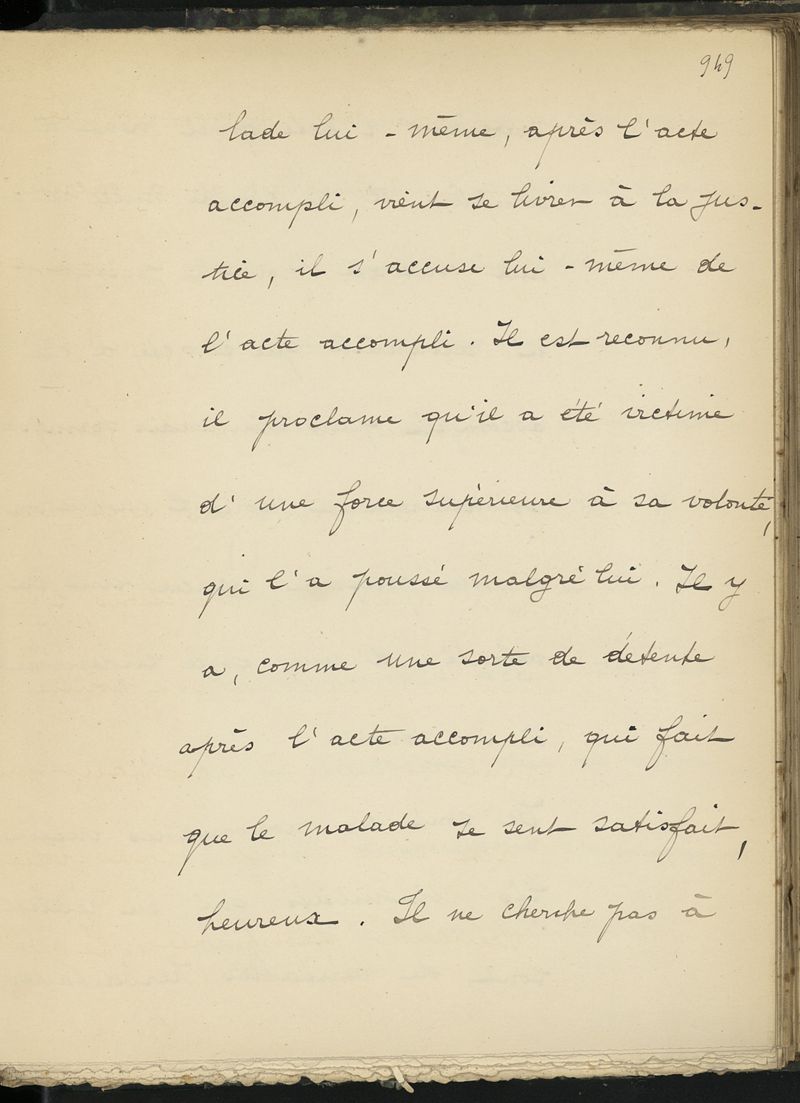 949
lade lui-même, après l'acte
accompli, vient se livrer à la jus-
tice, il s'accuse lui-même de
l'acte accompli. Il est reconnu,
il proclame qu'il a été victime
d'une force supérieure à sa volonté,
qui l'a poussé malgré lui. Il y
a, comme une sorte de détente
après l'acte accompli, qui fait
que le malade se sent satisfait,
heureux. Il ne cherche pas à